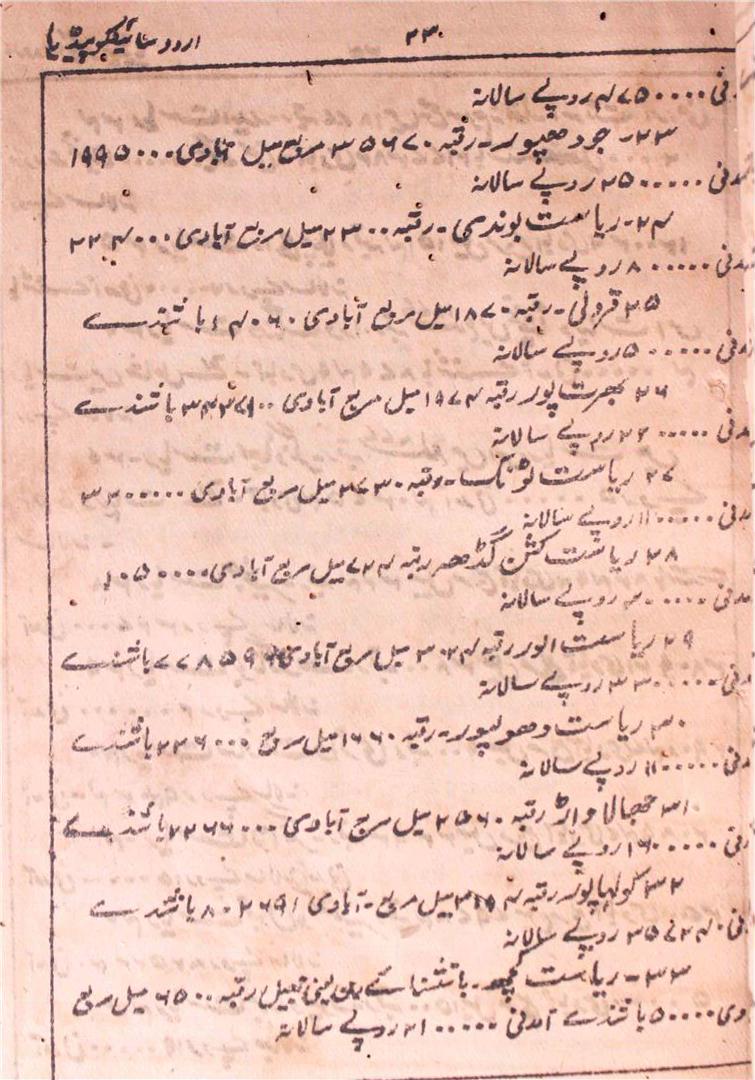 ۲۳۰ اردو سائیکلوپیڈیا
دنی ۴۷۵۰۰۰۰ روپے سالانہ
۲۳- جودھپور- رقبہ ۳۵۶۷۰ مربع میل آبادی ۱۹۹۵۰۰۰
مدنی ۲۵۰۰۰۰۰ روپے سالانہ
۲۴- ریاست بوندی- رقبہ ۲۳۰۰ میل مربع آبادی ۲۲۴۰۰۰
مدنی ۸۰۰۰۰۰ روپے سالانہ
۲۵ قرولی- رقبہ ۱۸۷۰ میل مربع آبادی باشندے
مدنی ۵۰۰۰۰۰ روپے سالانہ
۲۶ بھرت پور رقبہ ۱۹۷۴ میل مربع آبادی باشندے
روپے سالانہ
۲۷ ریاست ٹونک- رقبہ ۲۷۳۰ میل مربع آبادی ۳۳۰۰۰۰۰
مدنی ۱۱۰۰۰۰۰ روپے سالانہ
۲۸ ریاست کشن گڈھ رقبہ ۷۲۴ میل مربع آبادی ۱۰۵۰۰۰۰
مدنی روپے سالانہ
۲۹ ریاست الور رقبہ ۳۰۲۴ میل مربع آبادی ۷۷۸۵۹۶ باشندے
دنی ۲۳۰۰۰۰۰ روپے سالانہ
۳۰ ریاست دھولپور- رقبہ ۱۶۶۰ میل مربع ۲۲۶۰۰۰ باشندے
مدنی ۱۱۰۰۰۰۰ روپے سالانہ
۳۱ جھالاواڑ رقبہ ۲۵۶۰ میل مربع آبادی ۲۲۶۶۰۰۰ باشندے
دنی ۱۶۰۰۰۰۰ روپے سالانہ
۳۲ کولہاپور رقبہ میل مربع- آبادی ۸۰۲۶۹۱ باشندے
دنی روپے سالانہ
۳۳- ریاست کچھ- باستثنائے رن یعنی جھیل رقبہ ۶۵۰۰ میل مربع
دی ۵۰۰۰۰ باشندے آمدنی ۲۱۰۰۰۰۰ روپے سالانہ